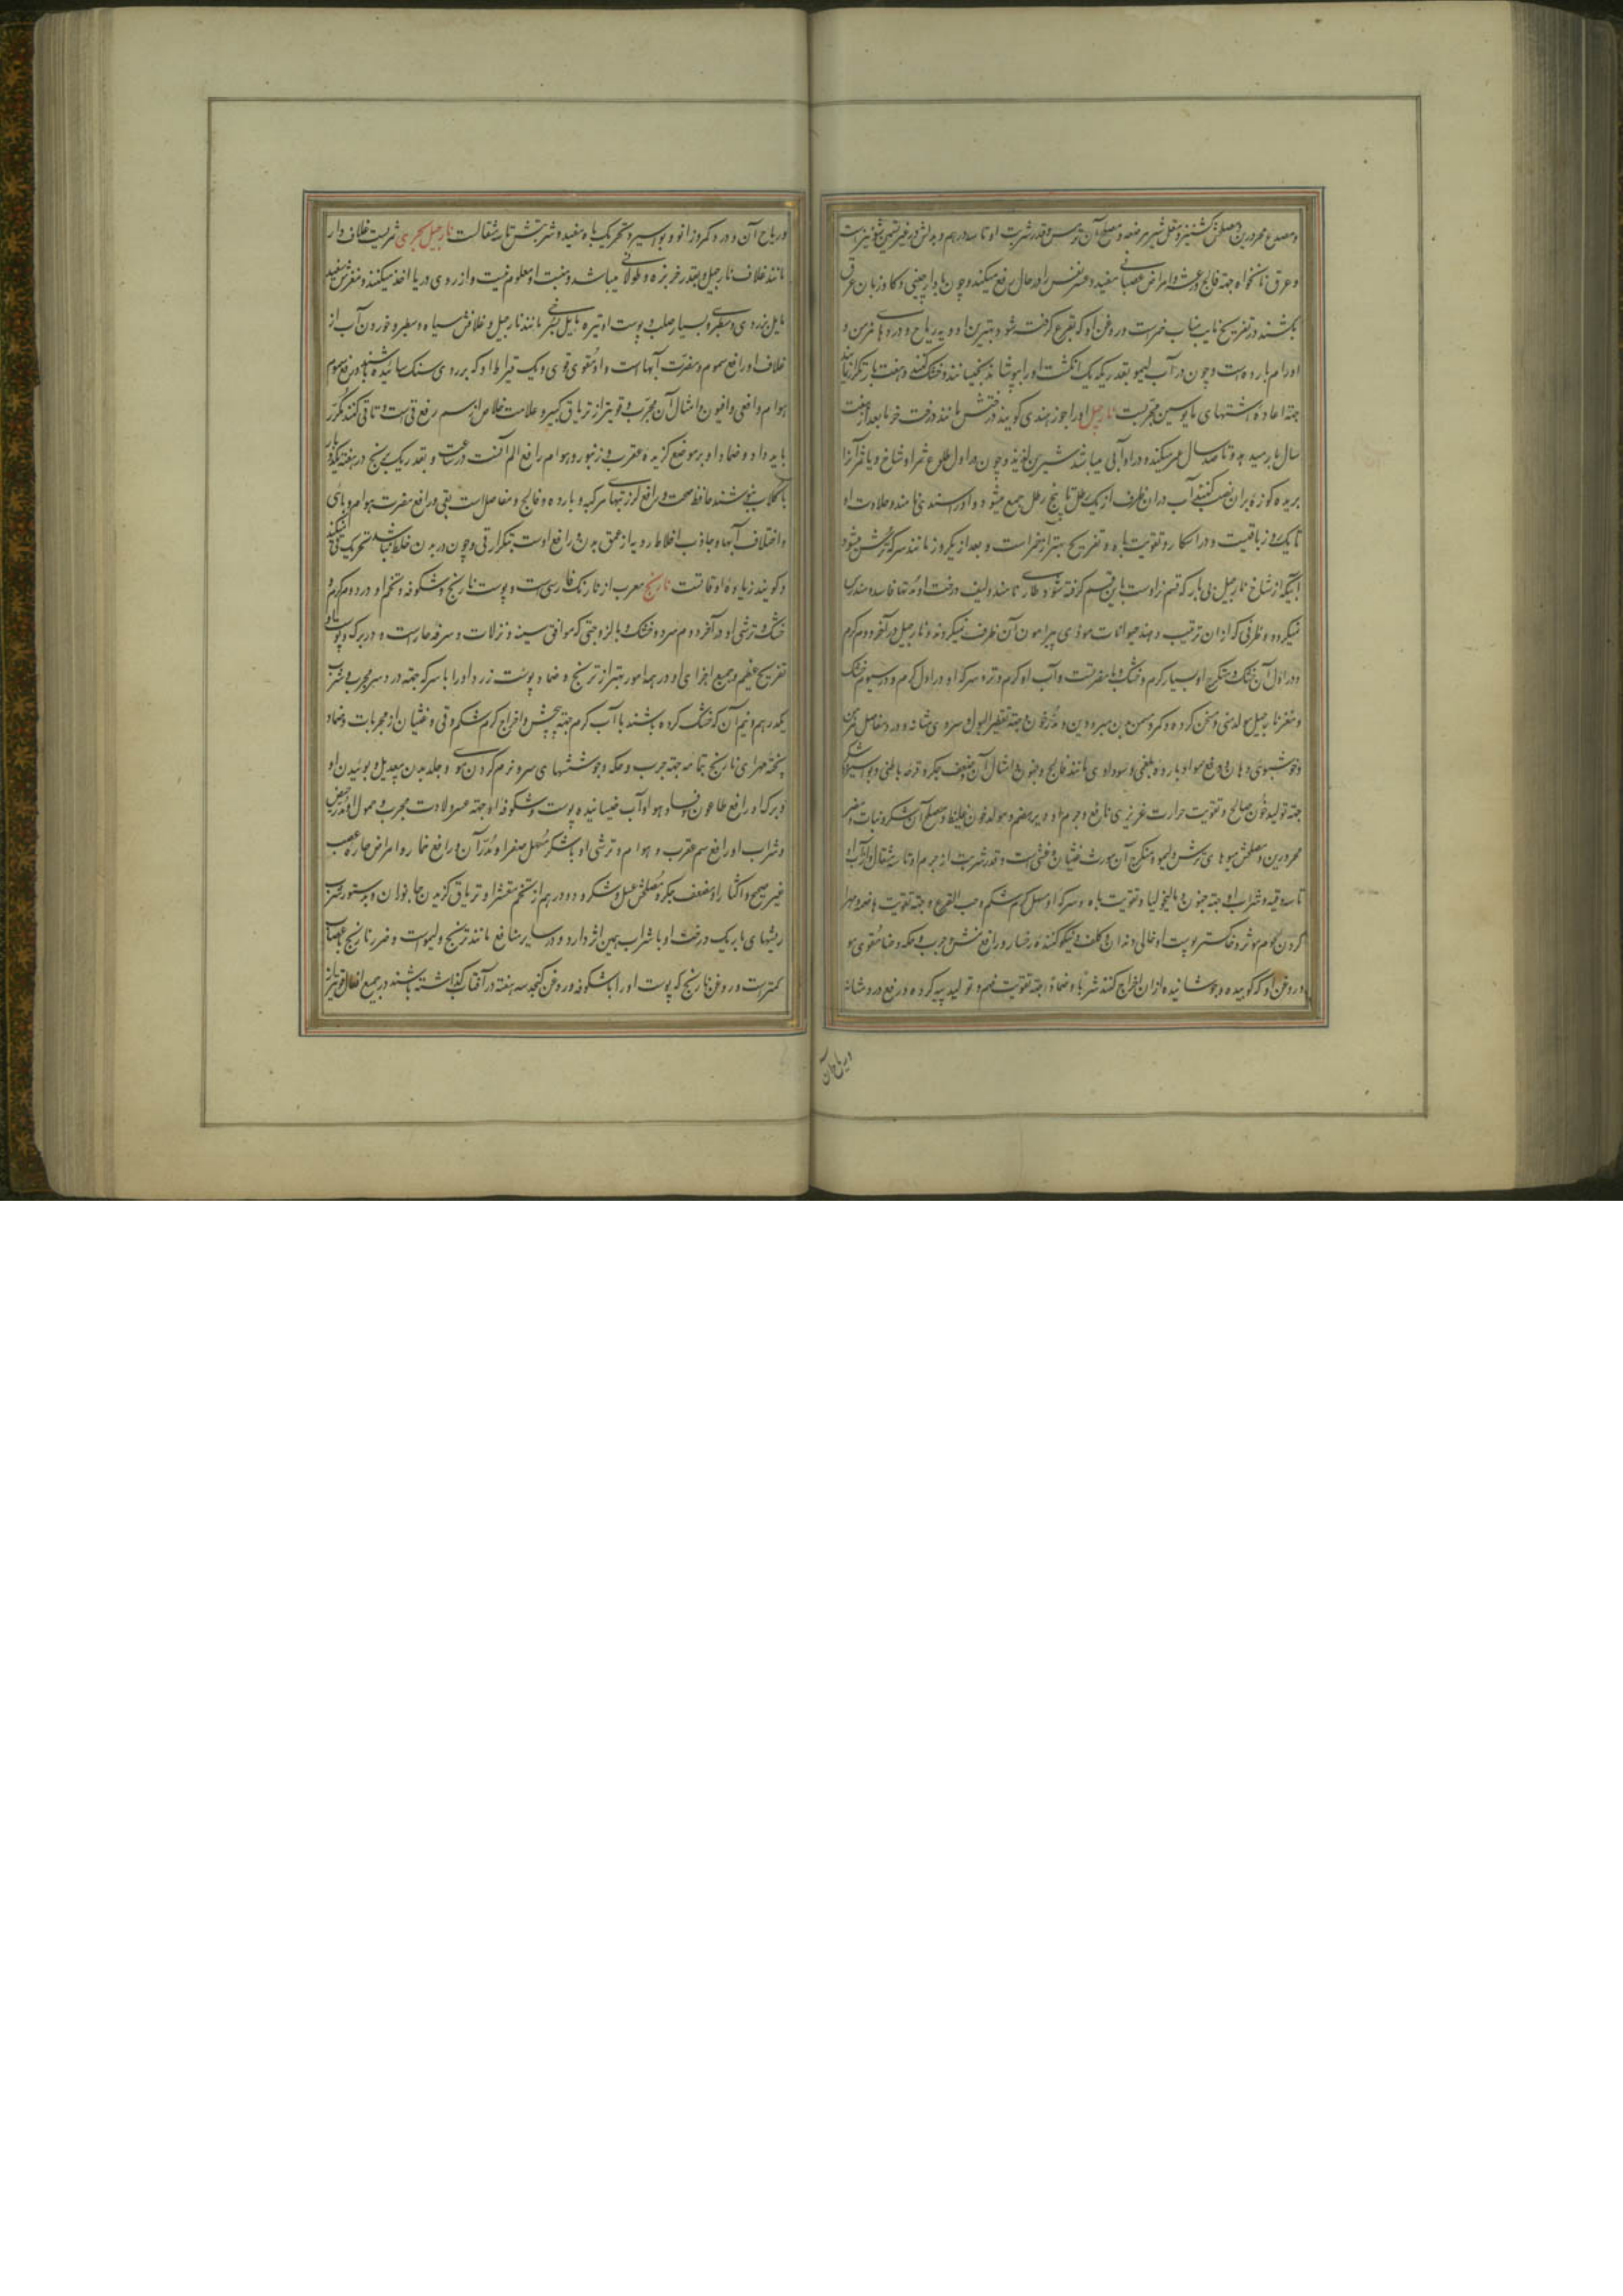 و مصدع محرورین و مصلحش کشنیز و مقل شیر مرضعه و مصلح آن ترمس و قدر شربت او تا سه درهم و بدلش در غیر تسمین شونیز است
و عرق نانخواه جهة فالج و رعشه و امراض عصبانی مفید و عسر نفس را در حال رفع میکند و چون با دارچینی و کاو زبان عرق
بکشند در تفریح نایب مناب خمر است و روغن او که بقرع گرفته شود بهترین ادویه ریاح و دردهای مزمن و
اورام بارده است و چون در آب لیمو بقدریکه یک انگشت او را بپوشاند بخیسانند و خشک کنند و هفت بار تکرار نمایند
جهة اعاده اشتهای مایوسین مجربست نارجیل او را جوز هندی کویند درختش مانند درخت خرما بعد از هفت
سال بار میدهد و تا صد سال عمر میکند و در او آبی میباشد شیرین و لذیذ و چون در اول طلوع ثمر او شاخ و یا ثمر آنرا
بریده کوزه بران نصب کنند آب دران ظرف از یک رطل تا پنج رطل جمع میشود و او را سندی نامند و حلاوت او
تا یک روز باقیست و در اسکار و تقویت باه و تفریح بهتر از خمر است و بعد از یکروز مانند سرکه ترش میشود
آنچه از شاخ نارجیل بی بار که قسم نر اوست باین قسم گرفته شود طاری نامند و لیف درخت او در آنها فاسد و مندرس
نمیگردد و ظرفی که ازان ترتیب دهند حیوانات موذی پیرامون آن ظرف نمیگردند و نارجیل در آخر دوم گرم
و در اول آن خشک و متکرج او بسیار گرم و خشک و با مضرتست و آب او گرم و تر و سرکه او در اول گرم و در سیوم خشک
و مغز نارجیل مولد منی و مسخن کرده و کمر و مسمن بدن مبرودین و مدر خون و جهة تقطیر البول و سردی مثانه و درد مفاصل مزمن
و خوشبوئی دهان و رفع مواد بارده بلغمی و سوداوی مانند فالج و جنون و امثال آن و ضعف جگر و قرحه باطنی و بواسیر و با شکر
جهة تولید خون صالح و تقویت حرارت غریزی نافع و جرم او دیر هضم و مولد خون غلیظ و مصلح آن شکر و نبات و مضر
محرورین و مصلحش میوه های ترش و لیمو و متکرج آن مورث غثیان و غشی است و قدر شربت از جرم او تا سه مثقال و از آب او
تا سه وقیه و شراب او جهة جنون و مالیخولیا و تقویت باه و سرکه او مسهل کرم شکم و حب القرع و جهة تقویت هاضمه و مهرا
کردن لحوم موثر و خاکستر پوست او جالی دندان و کلف و نیکو کننده رخسار و رافع نمش و جرب و حکه و ضماد مقوی مو
و روغن او که کوبیده و جوشانیده ازان اخراج کنند شربا و ضمادا جهة تقویت فهم و تولید پیه کرده و رفع درد مثانه
و ریاح آن
و ریاح آن و درد کمر و زانو و بواسیر و تحریک باه مفید و شربتش تا سه مثقالست نارجیل بحری ثمریست غلاف دار
مانند غلاف نارجیل و بقدر خربزه و طولانی میباشد و منبت او معلوم نیست و از روی دریا اخذ میکنند و مغزش سفید
مایل بزردی و سطبر و بسیار صلب و پوست او تیره مایل بسرخی مانند نارجیل و غلافش سیاه و سطبر و خوردن آب از
غلاف او رافع سموم و مضرت آبهاست و او مقوی قوی و یک قیراط او که بر روی سنگ سائیده باشند در رفع سموم
هوام و افعی و افیون و امثال آن مجرب و قویتر از تریاق کبیر و علامت خلاص از سم رفع قی است و تا قی کنند مکرر
باید داد و ضماد او بر موضع گزیده عقرب و زنبور و هوام رافع الم آنست در ساعت و بقدر یک برنج در هفته یکبار
با گلاب بنوشند حافظ صحت و رافع لرز تبهای مرکبه و بارده و فالج و مفاصل است بقی و رافع مضرت هوای وبائی
و اختلاف آبها و جاذب اخلاط ردیه از عمق بدن و رافع اوست بتکرار قی و چون در بدن خلط نباشد تحریک قی نمیکند
و کویند زیاده او قاتلست نارنج معرب از نارنک فارسی است و پوست نارنج و شکوفه و تخم او در دوم گرم و
خشک و ترشی او در آخر دوم سرد و خشک و بالزوجتی که موافق سینه و نزلات و سرفه حار است و در برک و پوست او
تفریح عظیم و جمیع اجزای او در همه امور بهتر از ترنج و ضماد پوست زرد او را با سرکه جهة درد سر مجرب و شرب
یکدرهم و نیم آن که خشک کرده باشند با آب گرم جهة پیچش و اخراج کرم شکم و قی و غثیان از مجربات و ضماد
پخته مهرای نارنج تمامه جهة جرب و حکه و جوششهای سر و نرم کردن موی و جلد بدن بیعدیل و بوئیدن او
و برک او رافع طاعون و فساد هوا و آب خیسانیده پوست و شکوفه او جهة عسر ولادت مجرب و حمول او مدر حیض
و شراب او رافع سم عقرب و هوام و ترشی او با شکر مسهل صفرا و مدر آن و رافع خمار و امراض حاره عصب
غیر صحیح و اکثار او مضعف جگر و مصلحش عسل و شکر و دو درهم از تخم مقشر او تریاق گزیدن جانوران و بدستور شرب
ریشهای باریک درخت او با شراب همین اثر دارد و در سایر منافع مانند ترنج و لیمو است و ضرر نارنج باعصاب
کمتر است و روغن نارنج که پوست او را با شکوفه در روغن کنجد سه هفته در آفتاب گذاشته باشند در جمیع افعال قویتر از